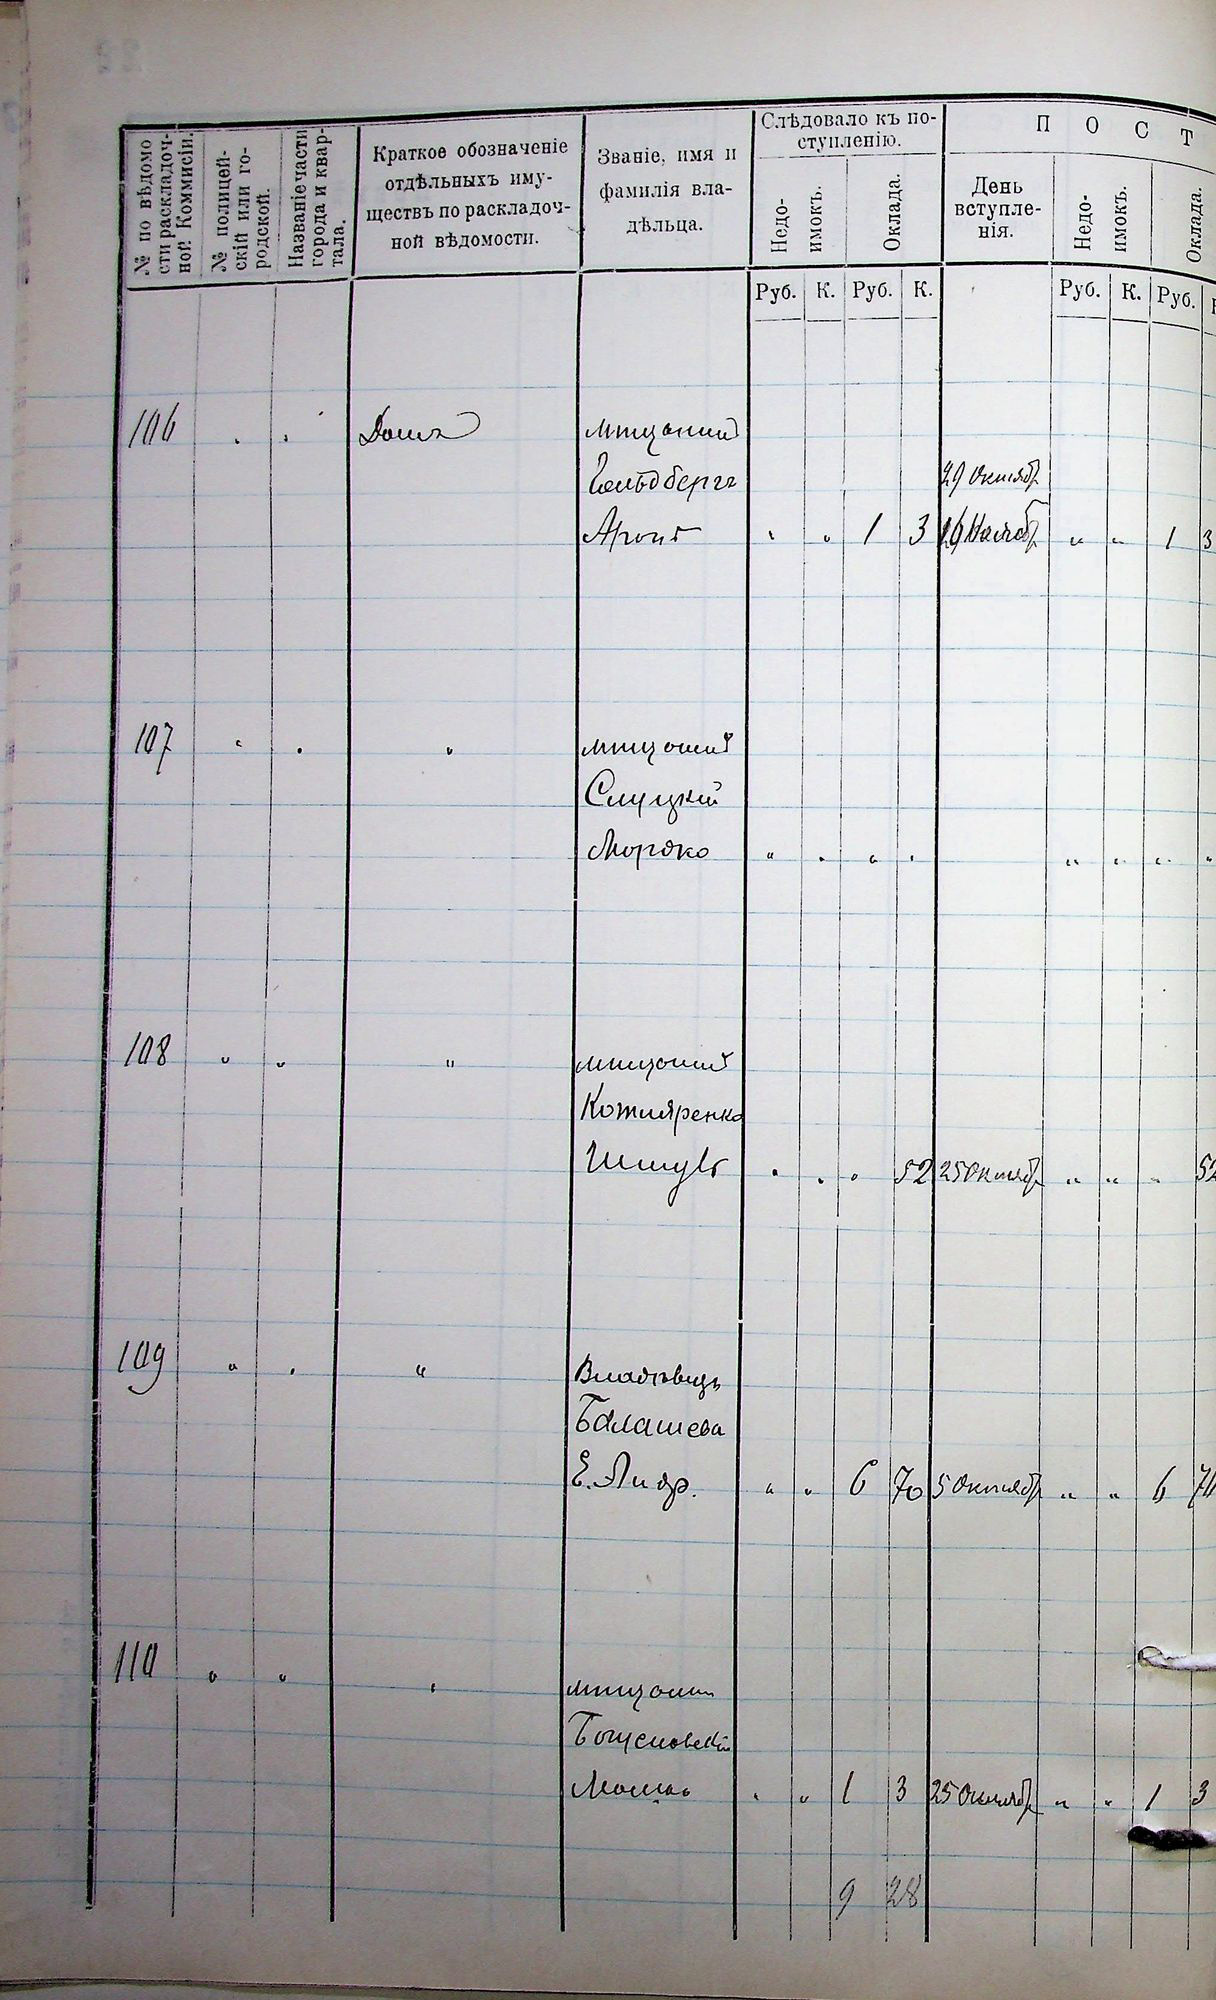 № по вѣдомо
сти раскладоч-
ной Коммисіи.
№ полицей-
скій или го-
родской.
Названіе части
города и квар-
тала.
Краткое обозначеніе
отдѣльныхъ иму-
ществъ по раскладоч-
ной вѣдомости.
Званіе, имя и
фамилія вла-
дѣльца.
Слѣдовало къ по-
ступленію.
Недо-
имокъ.
Оклада.
П О С Т
День
вступле-
нія.
Недо-
имокъ.
Оклада.
Руб. К. Руб. К. Руб. К. Руб.
106 Домъ мѣщанинъ
Гольдбергъ 29 Октябр
Аронъ " " 1 3 16 Ноябр " " 1 3
107 " " " мѣщанинъ
Слуцкій
Мордко " " " " " " " "
108 " " " мѣщанинъ
Котляренко
Шмуль " " " 52 25 Октябр " " " 52
109 " " " Владѣлецъ
Балашева
Е. Андр. " " 6 70 5 Октябр " " 6 70
110 " " " мѣщанин
Богуславскій
Мошко " " 1 3 25 Октябр " " 1 3
9 28